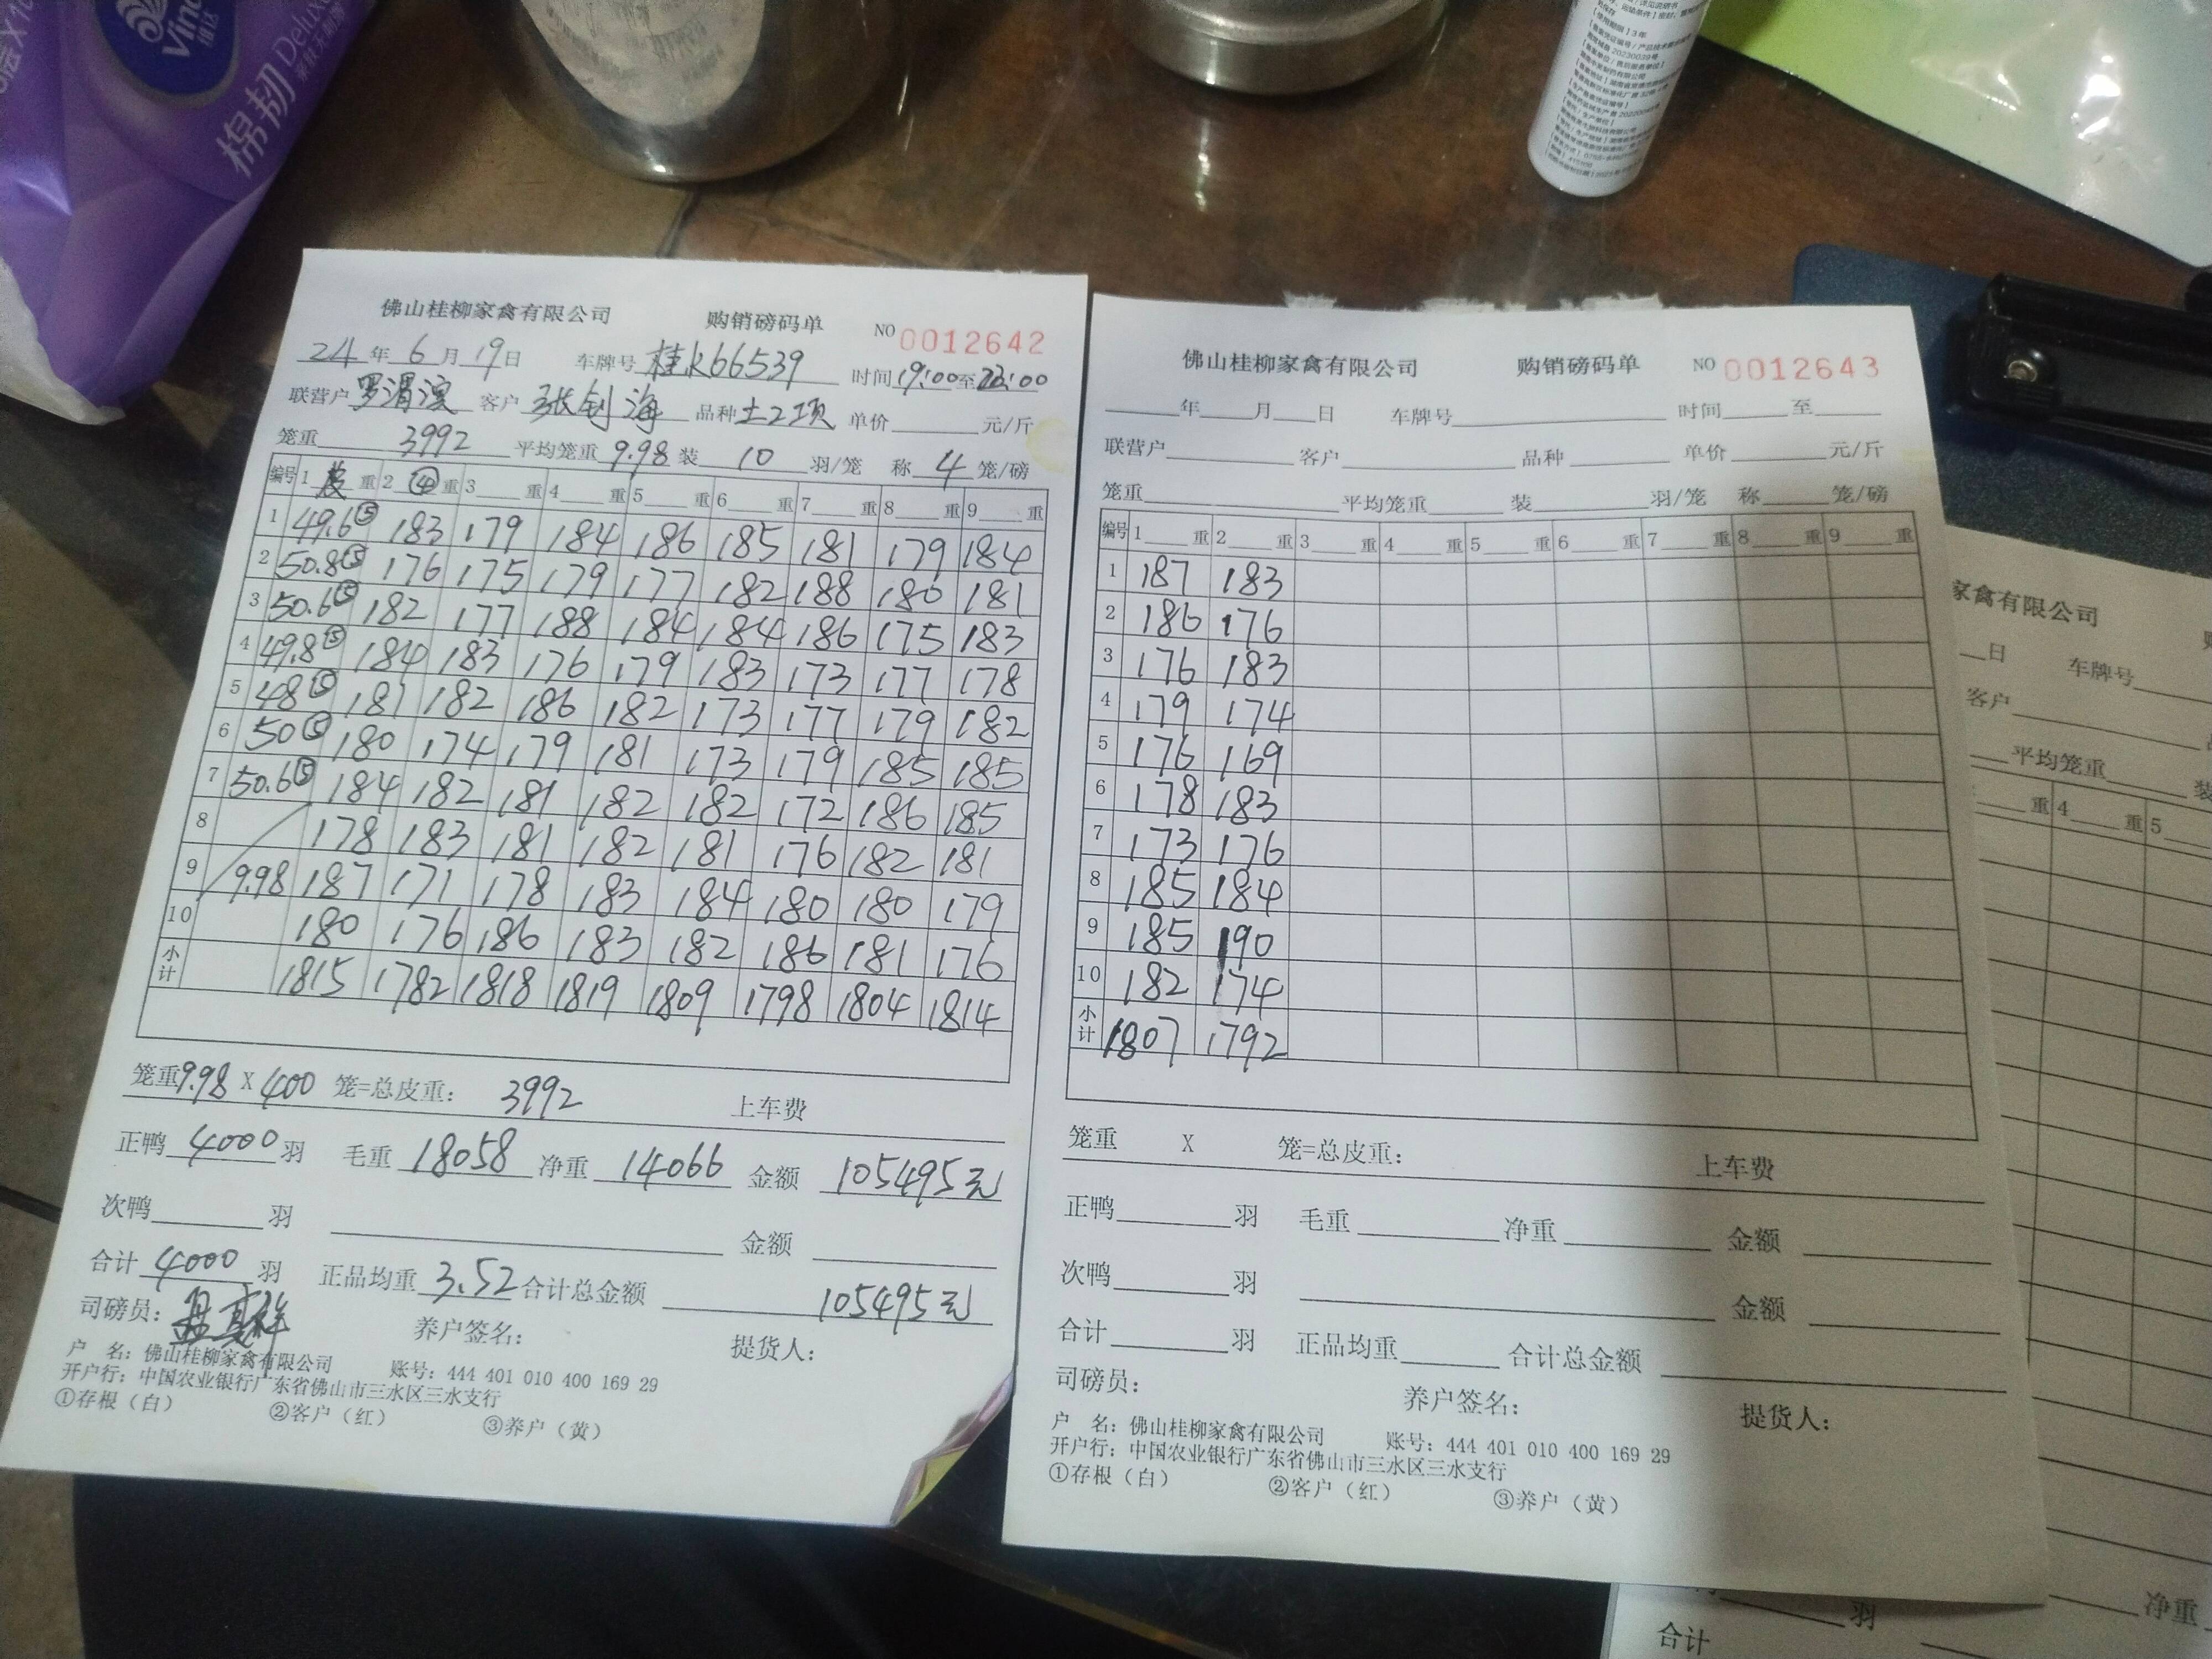 Vinda
维达
棉韧 Deluxe
佛山桂柳家禽有限公司 购销磅码单 NO 0012642
24年6月19日 车牌号 桂K66539 时间19:00至23:00
联营户 客户 张钊海 品种土2项 单价 元/斤
笼重 3992 平均笼重 9.98 装 10 羽/笼 称 4 笼/磅
编号 1 皮 重 2 ④ 重 3 重 4 重 5 重 6 重 7 重 8 重 9 重
1 49.6⑤ 183 179 184 186 185 181 179 184
2 50.8⑤ 176 175 179 177 182 188 180 181
3 50.6⑤ 182 177 188 184 184 186 175 183
4 49.8⑤ 184 183 176 179 183 173 177 178
5 48⑤ 181 182 186 182 173 177 179 182
6 50⑤ 180 174 179 181 173 179 185 185
7 50.6⑤ 184 182 181 182 182 172 186 185
8 178 183 181 182 181 176 182 181
9 9.98 187 171 178 183 184 180 180 179
10 180 176 186 183 182 186 181 176
小计 1815 1782 1818 1819 1809 1798 1804 1814
笼重9.98 X 400 笼=总皮重: 3992 上车费
正鸭 4000 羽 毛重 18058 净重 14066 金额 105495元
次鸭 羽 金额
合计 4000 羽 正品均重 3.52 合计总金额 105495元
司磅员: 养户签名: 提货人:
户 名: 佛山桂柳家禽有限公司 账号: 444 401 010 400 169 29
开户行: 中国农业银行广东省佛山市三水区三水支行
①存根（白） ②客户（红） ③养户（黄）
佛山桂柳家禽有限公司 购销磅码单 NO 0012643
年 月 日 车牌号 时间 至
联营户 客户 品种 单价 元/斤
笼重 平均笼重 装 羽/笼 称 笼/磅
编号 1 重 2 重 3 重 4 重 5 重 6 重 7 重 8 重 9 重
1 187 183
2 186 176
3 176 183
4 179 174
5 176 169
6 178 183
7 173 176
8 185 184
9 185 190
10 182 174
小计 1807 1792
笼重 X 笼=总皮重: 上车费
正鸭 羽 毛重 净重 金额
次鸭 羽 金额
合计 羽 正品均重 合计总金额
司磅员: 养户签名: 提货人:
户 名: 佛山桂柳家禽有限公司 账号: 444 401 010 400 169 29
开户行: 中国农业银行广东省佛山市三水区三水支行
①存根（白） ②客户（红） ③养户（黄）
家禽有限公司
日 车牌号
客户
平均笼重 装
重 4 重 5
羽 净重
合计